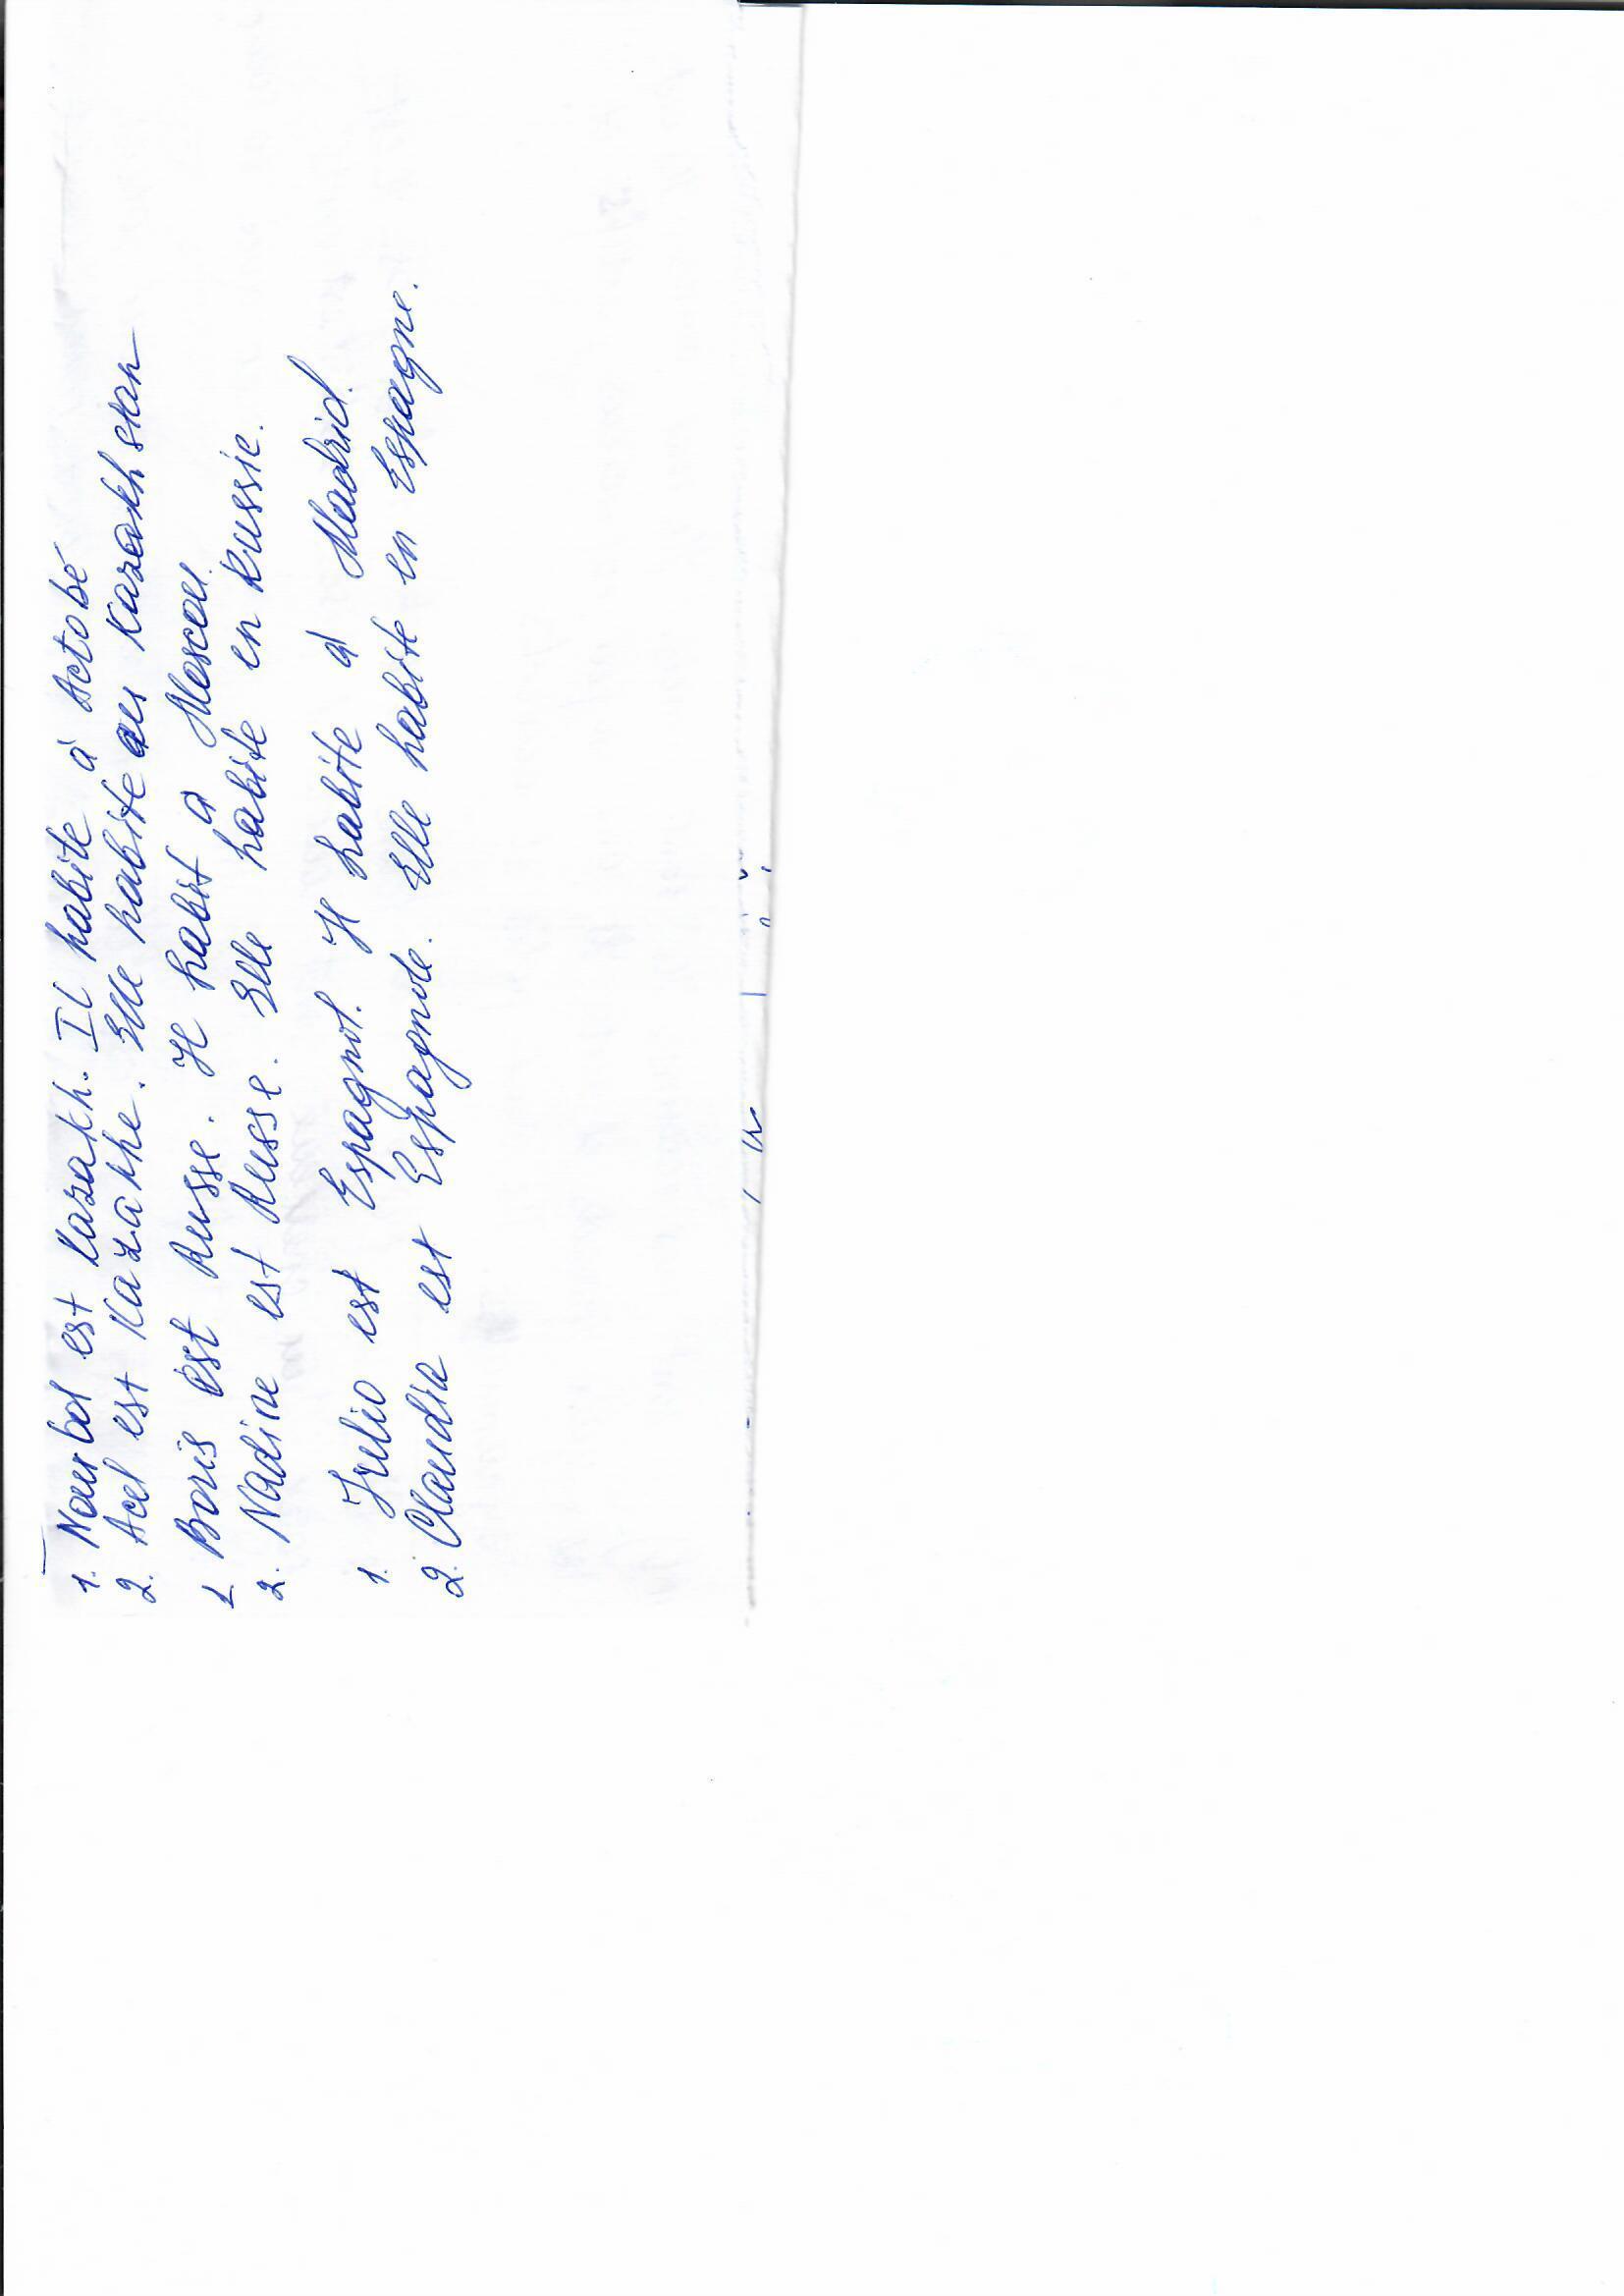 1. Nourbol est Kazakh. Il habite à Actobé
2. Acel est Kazakhe. Elle habite au Kazakhstan
1. Boris est Russe. Il habit a Moscou.
2. Nadine est Russe. Elle habite en Russie.
1. Julio est Espagnol. Il habite à Madrid.
2. Claudia est Espagnole. Elle habite en Espagne.